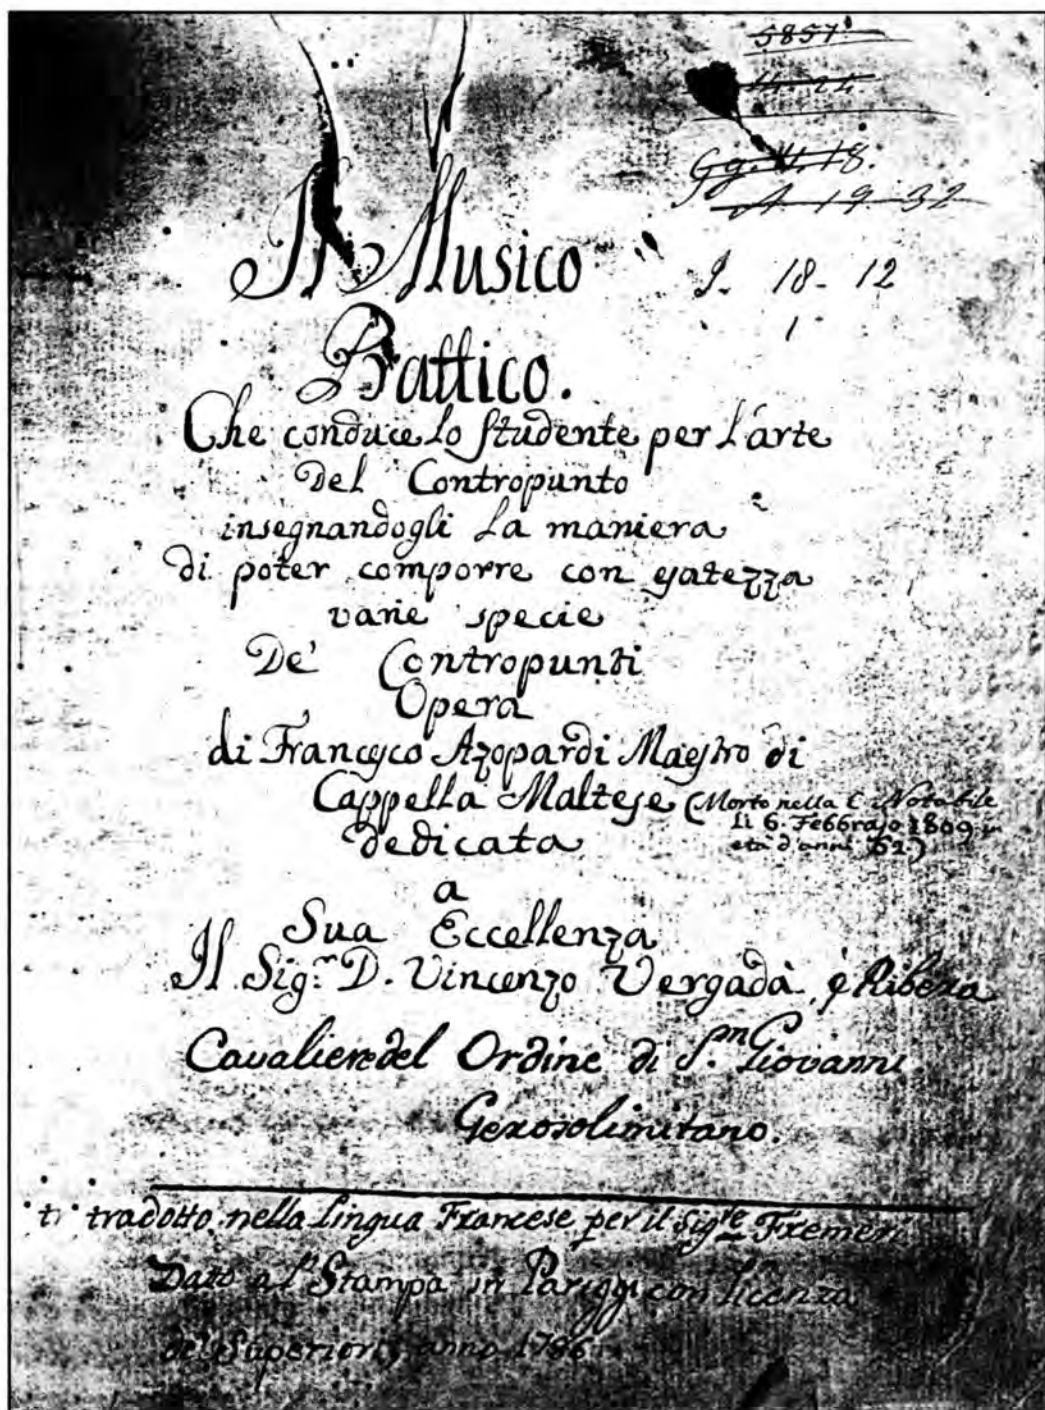 5857
Gg. 4. 18.
A. 19. 32
J. 18. 12
1
Il Musico
Prattico.
Che conduce lo studente per l'arte
Del Contropunto
insegnandogli la maniera
di poter comporre con esatezza
varie specie
De' Contropunti
Opera
di Francesco Azopardi Maestro di
Cappella Maltese (Morto nella C. Notabile
li 6. Febbrajo 1809 in
età d'anni 62.)
dedicata
a
Sua Eccellenza
Il Sig.r D. Vincenzo Vergadà, é Ribera
Cavaliere del Ordine di S.n Giovanni
Gerosolimitano.
tradotto nella Lingua Francese per il Sig.re Fremeri
Dato a l'Stampa in Pariggi con licenza
de' Superiori, anno 1786